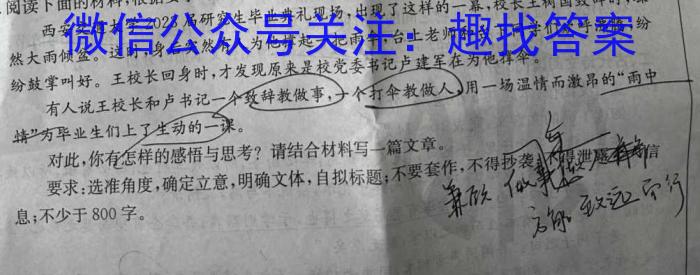 阅读下面的材料，根据要
西安 2023届研究生毕业典礼现场，出现了这样的一幕，校长王树国致辞时，
微信公众号关注：趣找答案
然大雨倾盆。这时，身 然有 为他撑起 把雨 台上老师 纷
纷鼓掌叫好。王校长回身时，才发现原来是校党委书记卢建军在为他撑伞。
有人说王校长和卢书记一个致辞教做事，一个打伞教做人，用一场温情而激昂的“雨中
情”为毕业生们上了生动的一课。
对此，你有怎样的感悟与思考？请结合材料写一篇文章。
要求：选准角度，确定立意，明确文体，自拟标题；不要套作，不得抄袭；不得泄露 信
息；不少于800字。
做事做人
方能致远 行